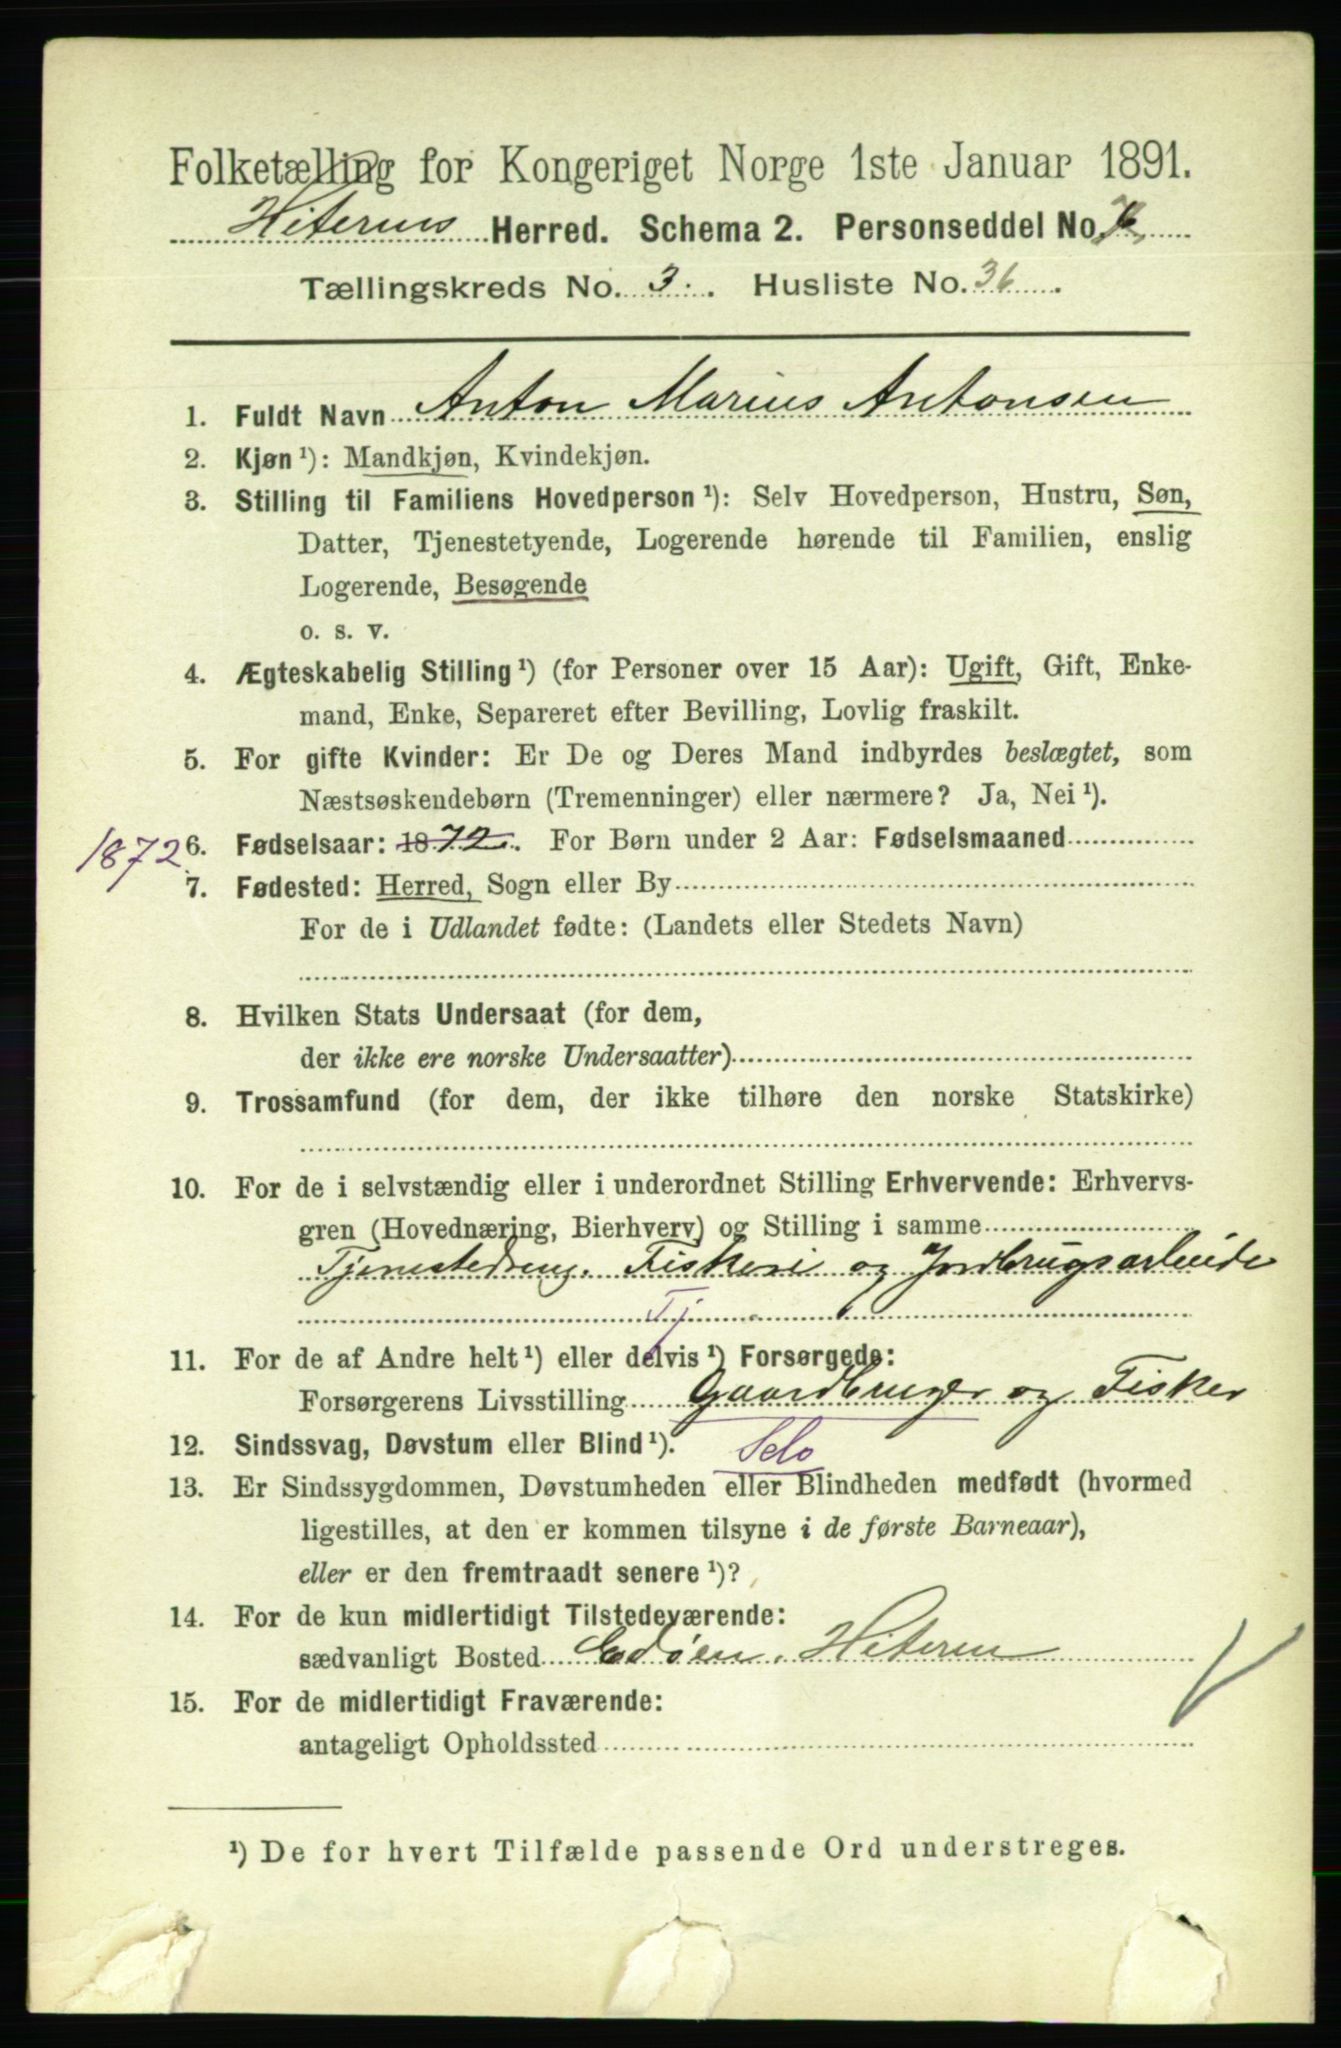 Folketælling for Kongeriget Norge 1ste Januar 1891.
Hiterens Herred. Schema 2. Personseddel No.
Tællingskreds No. 3. Husliste No. 36.
1. Fuldt Navn Anton Marius Antonsen
2. Kjøn ¹): Mandkjøn, Kvindekjøn.
3. Stilling til Familiens Hovedperson ¹): Selv Hovedperson, Hustru, Søn,
Datter, Tjenestetyende, Logerende hørende til Familien, enslig
Logerende, Besøgende
o. s. v.
4. Ægteskabelig Stilling ¹) (for Personer over 15 Aar): Ugift, Gift, Enke-
mand, Enke, Separeret efter Bevilling, Lovlig fraskilt.
5. For gifte Kvinder: Er De og Deres Mand indbyrdes beslægtet, som
Næstsøskendebørn (Tremenninger) eller nærmere? Ja, Nei ¹).
1872 6. Fødselsaar: 1872. For Børn under 2 Aar: Fødselsmaaned
7. Fødested: Herred, Sogn eller By
For de i Udlandet fødte: (Landets eller Stedets Navn)
8. Hvilken Stats Undersaat (for dem,
der ikke ere norske Undersaatter)
9. Trossamfund (for dem, der ikke tilhøre den norske Statskirke)
10. For de i selvstændig eller i underordnet Stilling Erhvervende: Erhvervs-
gren (Hovednæring, Bierhverv) og Stilling i samme
Tjenestedreng. Fiskeri og Jordbrugsarbeide
Tj
11. For de af Andre helt ¹) eller delvis ¹) Forsørgede:
Forsørgerens Livsstilling Gaardbruger og Fisker
12. Sindssvag, Døvstum eller Blind ¹). Selv
13. Er Sindssygdommen, Døvstumheden eller Blindheden medfødt (hvormed
ligestilles, at den er kommen tilsyne i de første Barneaar),
eller er den fremtraadt senere ¹)?
14. For de kun midlertidigt Tilstedeværende:
sædvanligt Bosted Edøen, Hiteren
15. For de midlertidigt Fraværende:
antageligt Opholdssted
¹) De for hvert Tilfælde passende Ord understreges.